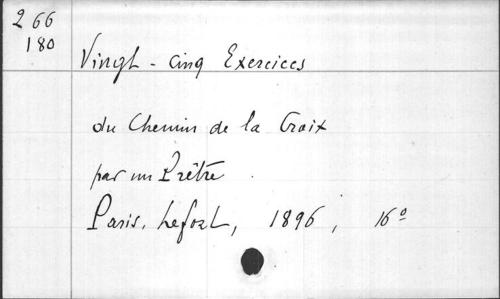 266
180
Vingt-cinq Exercices
du Chemin de la Croix
par un Prêtre
Paris, Lefort, 1896, 16°